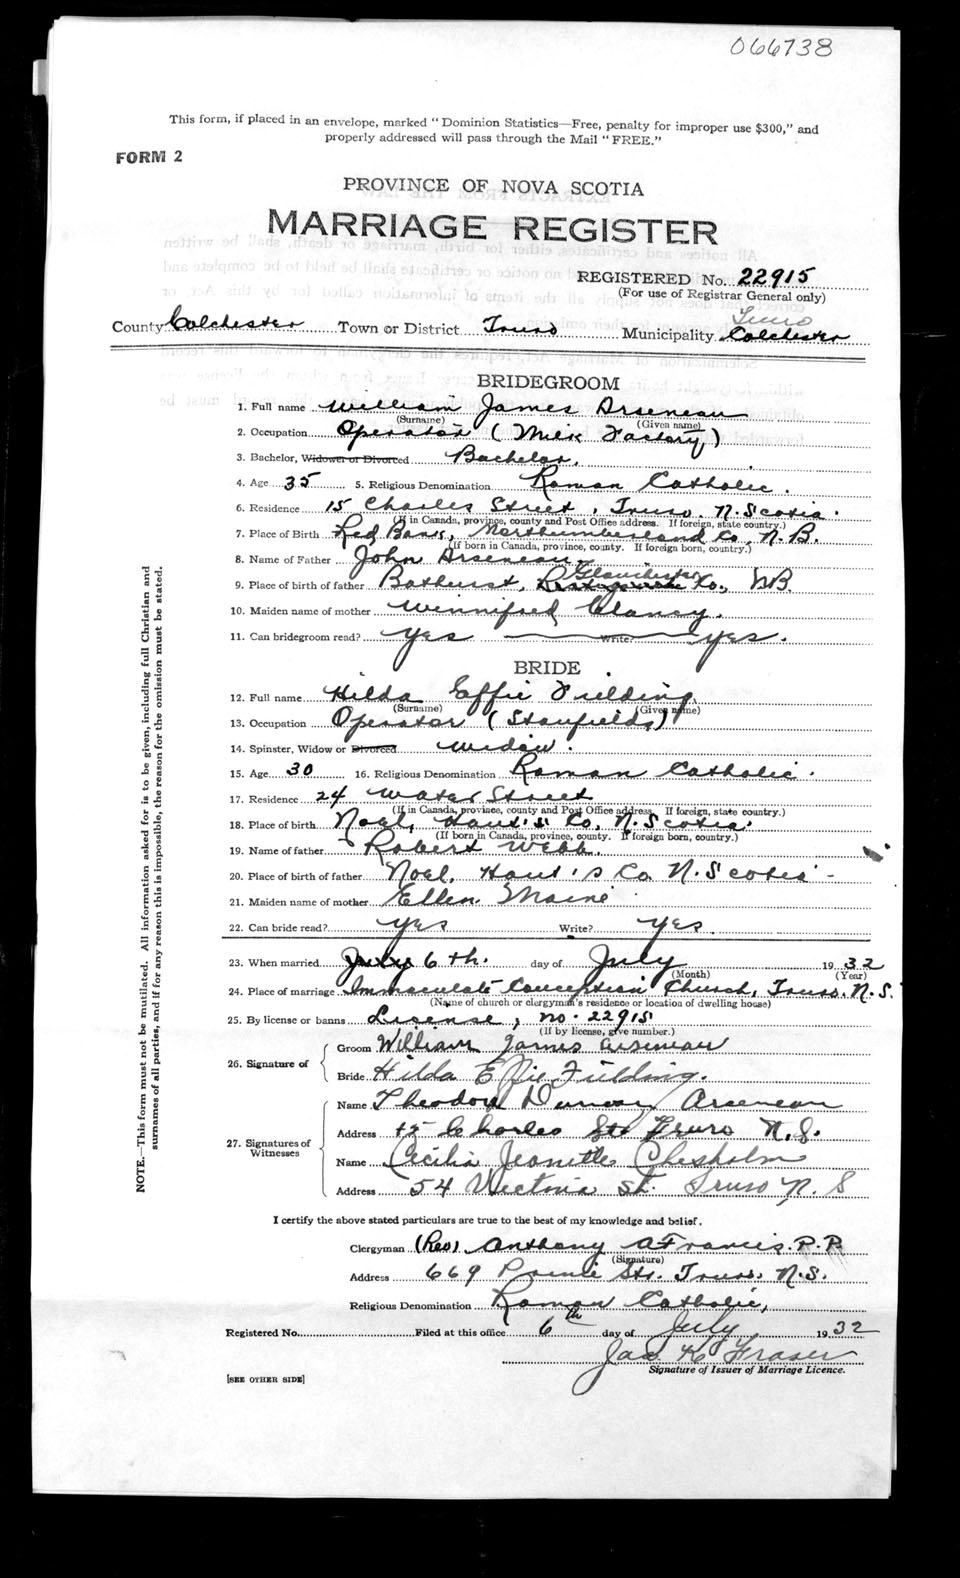 066738
This form, if placed in an envelope, marked "Dominion Statistics—Free, penalty for improper use $300," and
properly addressed will pass through the Mail "FREE."
FORM 2
PROVINCE OF NOVA SCOTIA
MARRIAGE REGISTER
REGISTERED No. 22915
(For use of Registrar General only)
Truro
County Colchester Town or District Truro Municipality Colchester
BRIDEGROOM
1. Full name William James Arseneau
(Surname) (Given name)
2. Occupation Operator (Milk Factory)
3. Bachelor, Widower or Divorced Bachelor.
4. Age 35 5. Religious Denomination Roman Catholic.
6. Residence 15 Charles Street, Truro. N. Scotia.
(If in Canada, province, county and Post Office address. If foreign, state country.)
7. Place of Birth Red Bank, Northumberland Co, N. B.
(If born in Canada, province, county. If foreign born, country.)
8. Name of Father John Arseneau.
Gloucester
9. Place of birth of father Bathurst, Restigouche Co., NB.
10. Maiden name of mother Winnifred Clancy.
11. Can bridegroom read? Yes Write? Yes.
BRIDE
12. Full name Hilda Effie Fielding
(Surname) (Given name)
13. Occupation Operator (Stanfields)
14. Spinster, Widow or Divorced widow.
15. Age 30 16. Religious Denomination Roman Catholic.
17. Residence 24 Water Street
(If in Canada, province, county and Post Office address. If foreign, state country.)
18. Place of birth Noel, Hant's Co, N. Scotia.
(If born in Canada, province, county. If foreign born, country.)
19. Name of father Robert Webb.
20. Place of birth of father Noel, Hant's Co N. Scotia -
21. Maiden name of mother Ellen Maine
22. Can bride read? Yes Write? Yes.
23. When married July 6th. day of July 1932
(Month) (Year)
24. Place of marriage Immaculate Conception Church, Truro. N. S.
(Name of church or clergyman's residence or location of dwelling house)
25. By license or banns Lisense, no. 22915
(If by license, give number.)
26. Signature of
Groom William James Arseneau
Bride Hilda Effie Fielding.
27. Signatures of Witnesses
Name Theodore Arseneau
Address 15 Charles St. Truro N. S.
Name Cecilia Jeanette Chisholm
Address 54 Victoria St. Truro N. S
I certify the above stated particulars are true to the best of my knowledge and belief.
Clergyman (Rev). Anthony A Francis. P. P.
(Signature)
Address 669 Prince Str. Truro. N. S.
Religious Denomination Roman Catholic,
Registered No. Filed at this office 6th day of July 1932
Jas. K Fraser
Signature of Issuer of Marriage Licence.
[SEE OTHER SIDE]
NOTE.—This form must not be mutilated. All information asked for is to be given, including full Christian and
surnames of all parties, and if for any reason this is impossible, the reason for the omission must be stated.